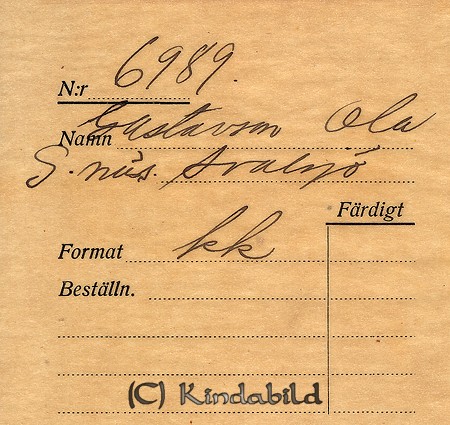 N:r 6989.
Namn Gustavson Ola
Färdigt
Format kk
Beställn.
(C) Kindabild